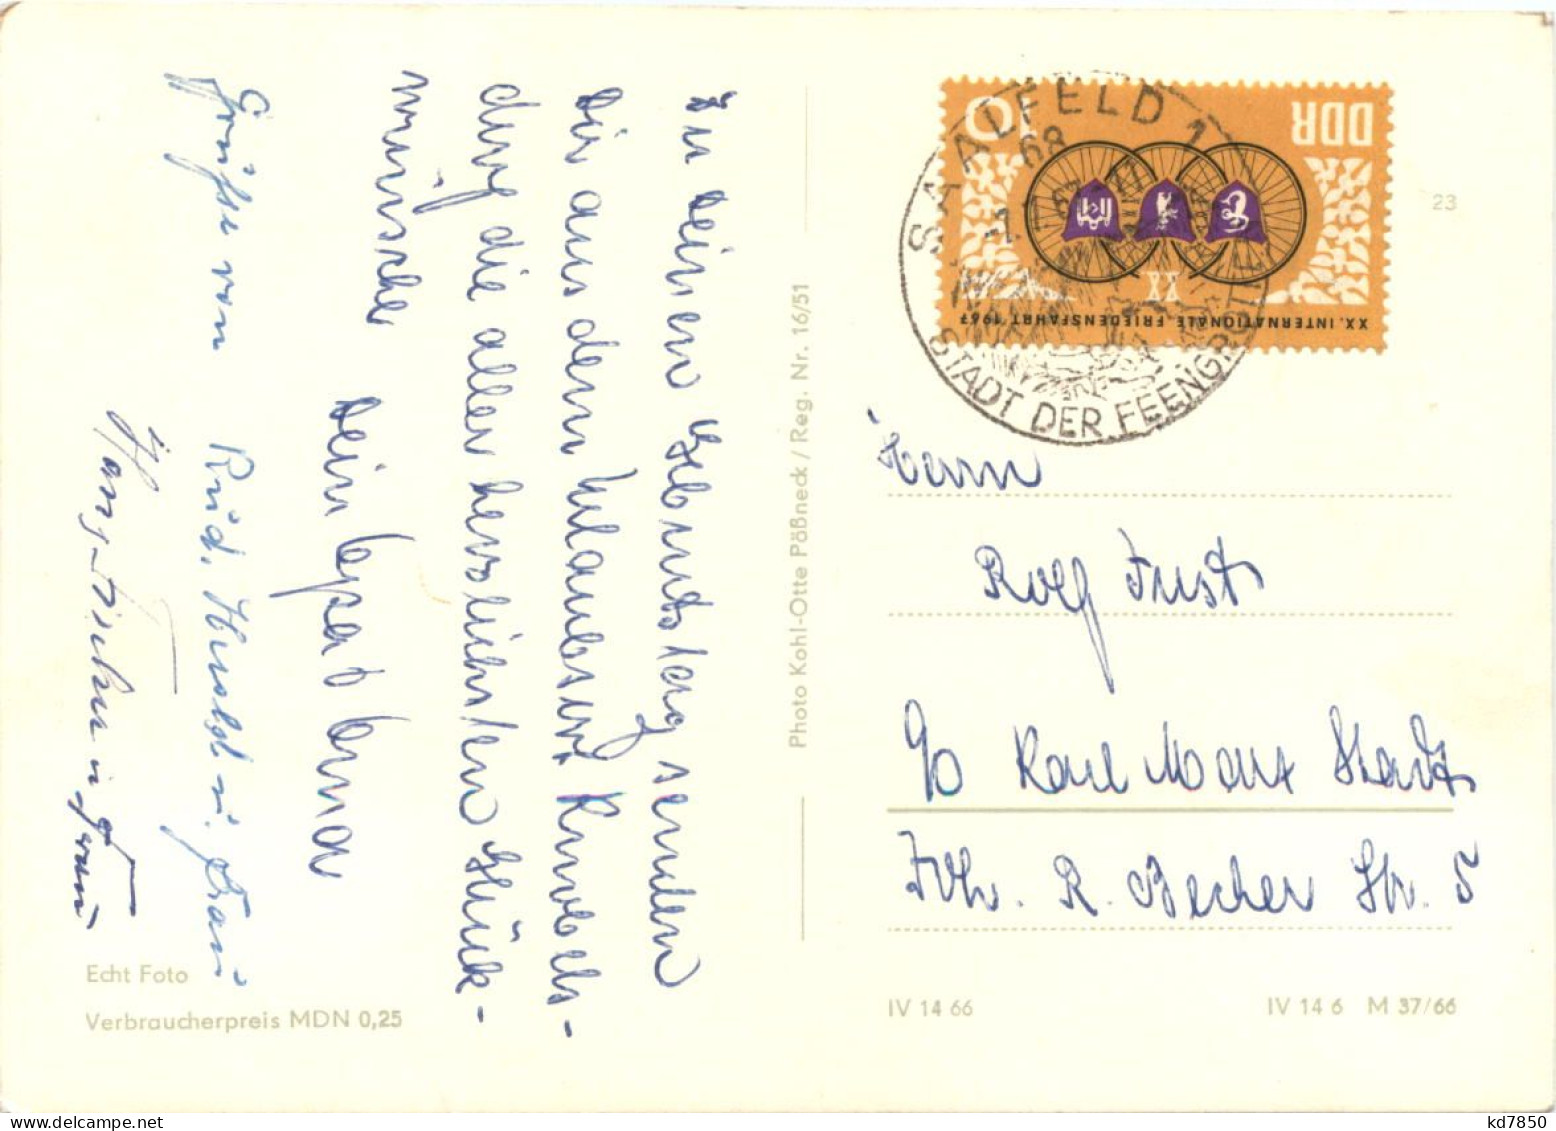 Zu Deinem Geburtstag senden
Dir aus dem Urlaubsort Knobels-
dorf die aller herzlichsten Glück-
wünsche
Dein Erna
Grüße von Rud. Herold u. Frau
Hans u. Frau
Echt Foto
Verbraucherpreis MDN 0,25
Photo Kohl-Otte Pößneck / Reg. Nr. 16/51
DDR
10
XX
XX. INTERNATIONALE FRIEDENSFAHRT 1967
SAALFELD 1
68
STADT DER FEENGROTTEN
23
Herrn
Rolf Fust
90 Karl Marx Stadt
Joh. R. Becher Str. 5
IV 14 66
IV 14 6 M 37/66
kd7850